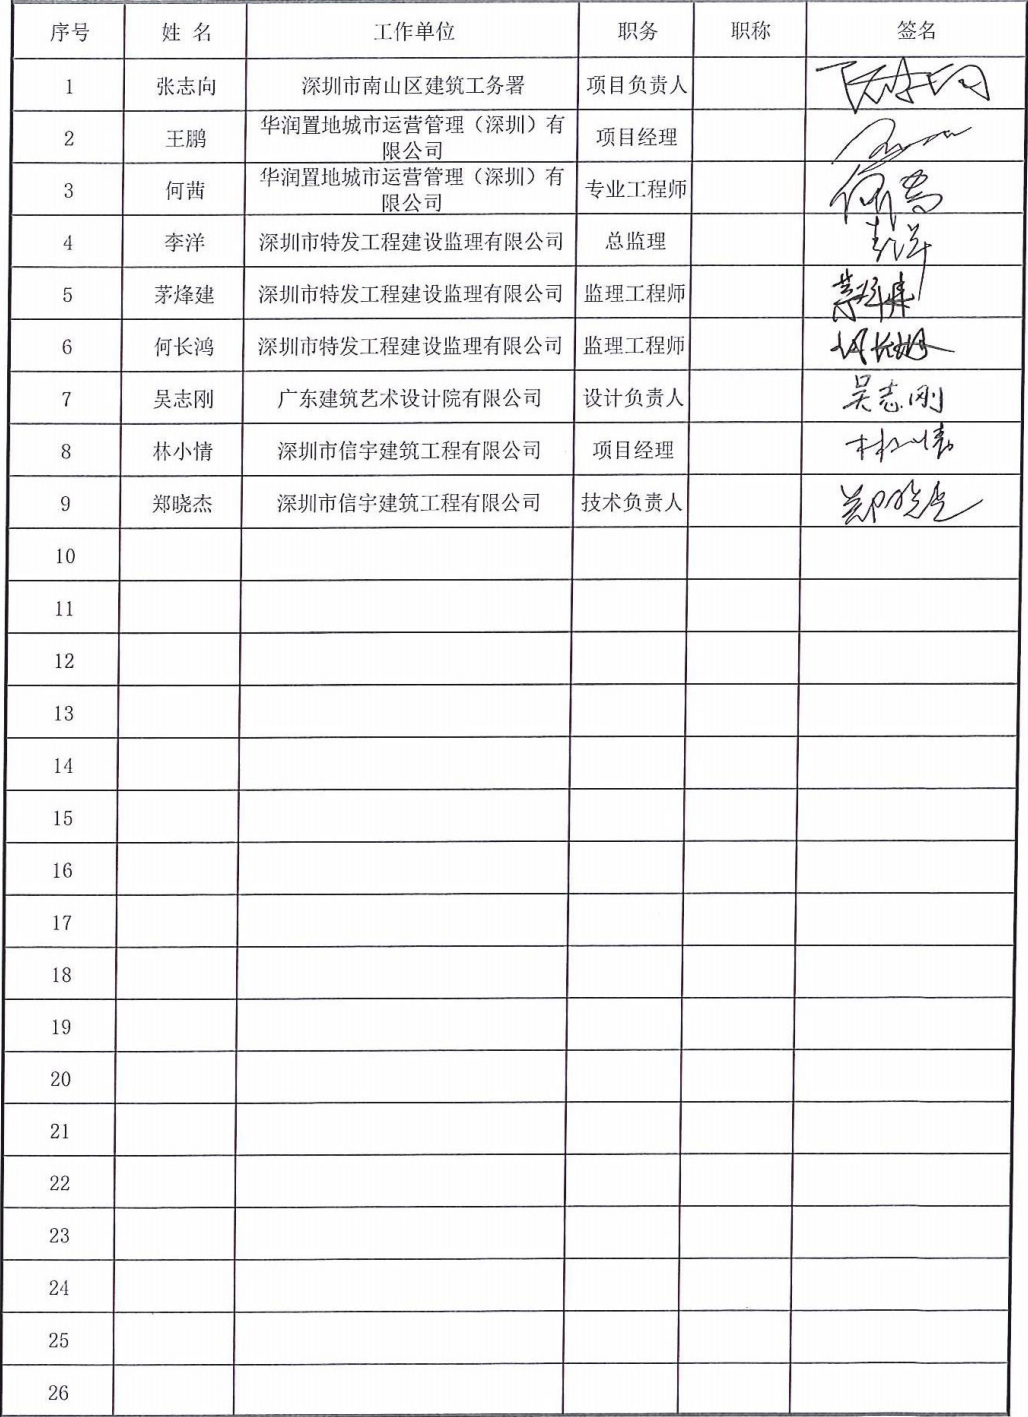 序号 姓 名 工作单位 职务 职称 签名
1 张志向 深圳市南山区建筑工务署 项目负责人
2 王鹏 华润置地城市运营管理（深圳）有
限公司 项目经理
3 何茜 华润置地城市运营管理（深圳）有
限公司 专业工程师
4 李洋 深圳市特发工程建设监理有限公司 总监理
5 茅烽建 深圳市特发工程建设监理有限公司 监理工程师
6 何长鸿 深圳市特发工程建设监理有限公司 监理工程师 何长鸿
7 吴志刚 广东建筑艺术设计院有限公司 设计负责人 吴志刚
8 林小情 深圳市信宇建筑工程有限公司 项目经理 林小情
9 郑晓杰 深圳市信宇建筑工程有限公司 技术负责人 郑晓杰
10
11
12
13
14
15
16
17
18
19
20
21
22
23
24
25
26